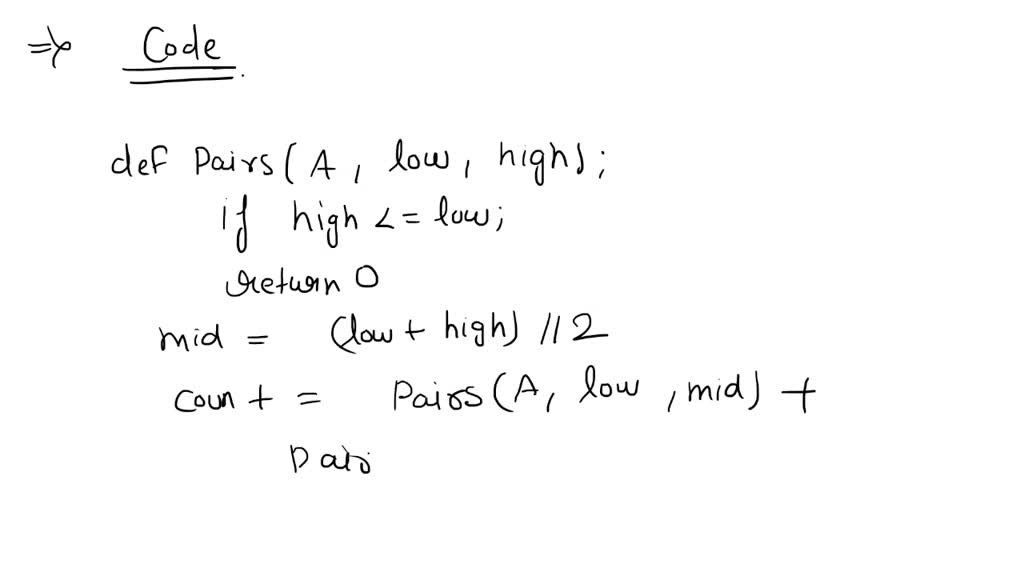 ⇒ Code
def Pairs(A, low, high);
if high <= low;
return 0
mid = (low + high) // 2
count = Pairs(A, low, mid) +
Pair